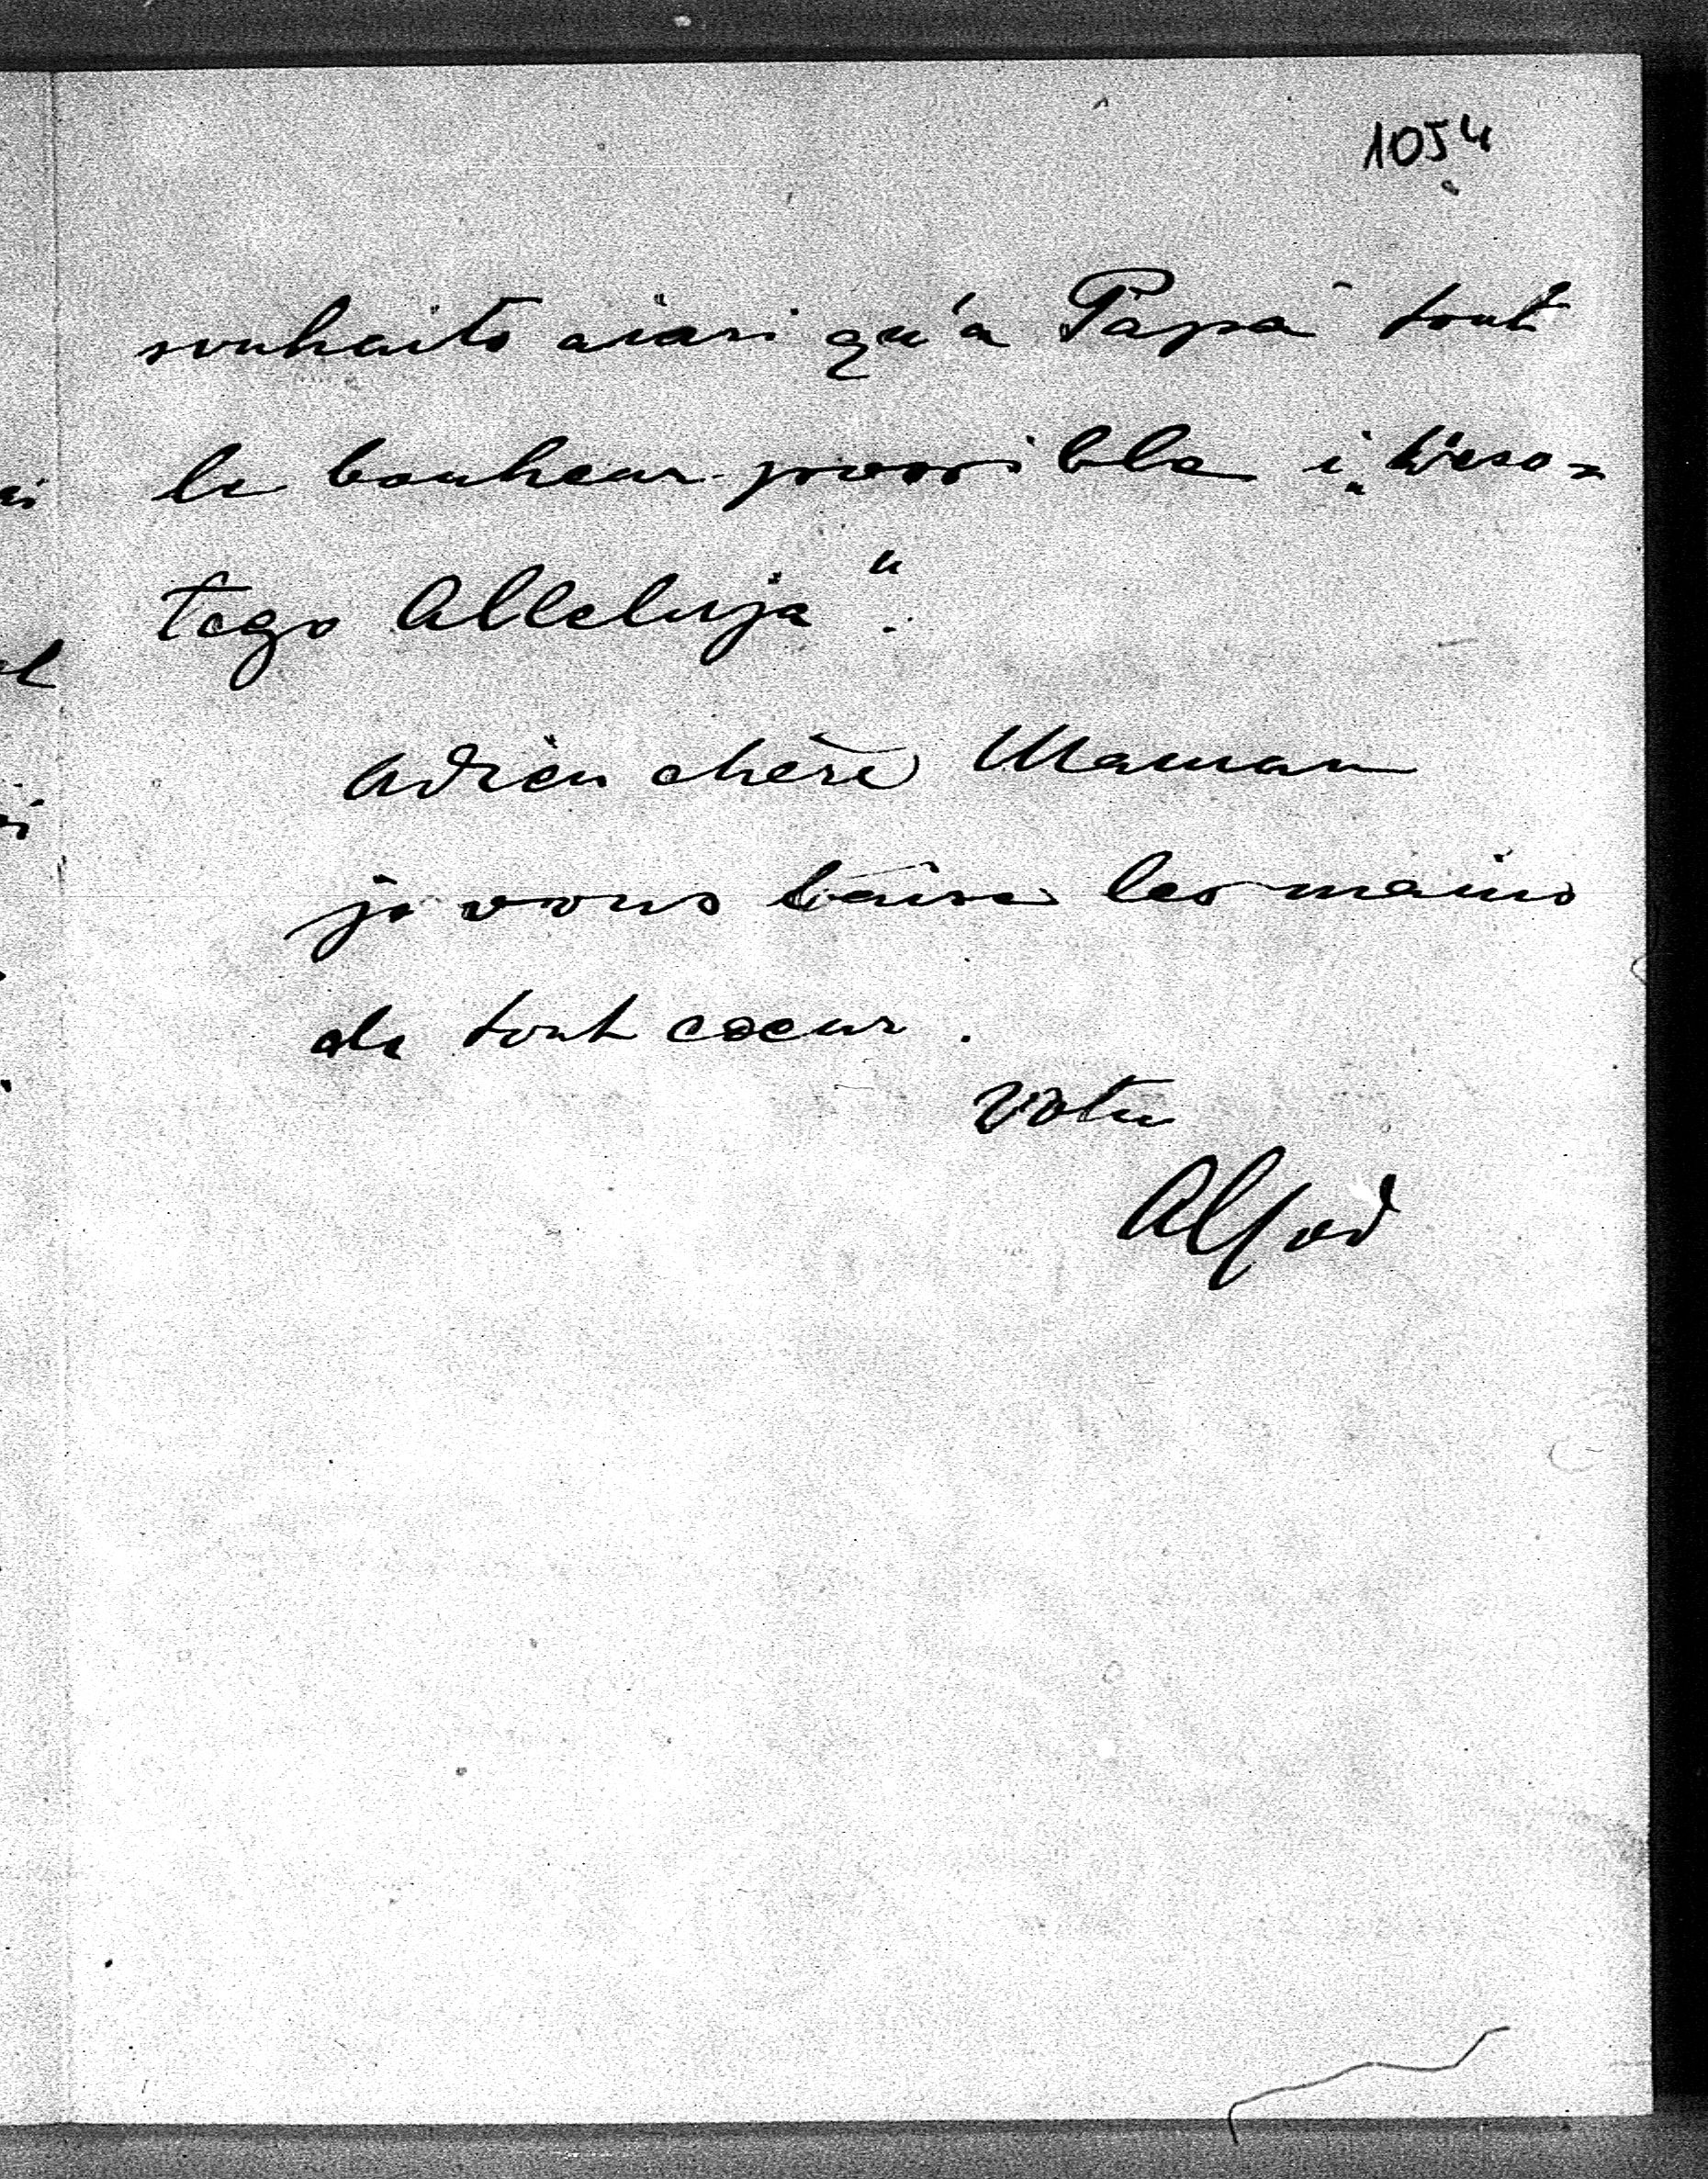 1054
souhaite ainsi qu'à Papa tout
le bonheur possible i „Weso=
łego Alleluja".
Adieu chère Maman
je vous baise les mains
de tout coeur.
Votre
Alfred